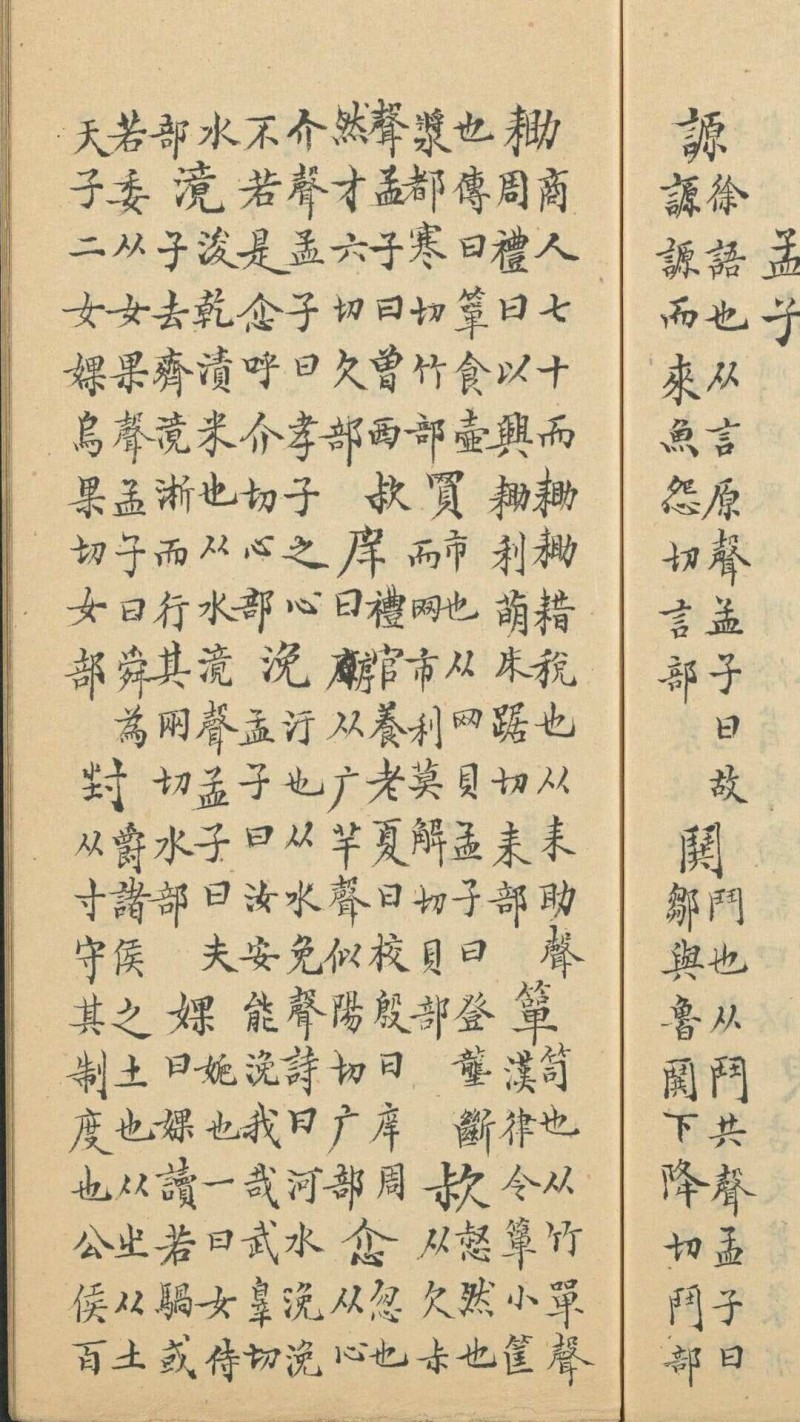 孟子
謜
徐語也从言原聲孟子曰故
謜謜而來魚怨切言部
鬨
鬥也从鬥共聲孟子曰
鄒與魯鬨下降切鬥部
耡
商人七十而耡耡耤稅也从耒助聲
周禮曰以興耡利萌床踞切耒部
簞
笥也从竹單聲
漢律令簞小筐
也傳曰簞食壺
漿都寒切竹部
買
市也从网貝孟子曰登壟斷
而网市利莫解切貝部
惄然也
从欠尗
聲孟子曰曾西
然才六切欠部
庠
禮官養老夏曰校殷曰庠周
曰从广羊聲似陽切广部
忽也
从心
介聲孟子曰孝子之心
不若是呼介切心部
浼
汙也从水免聲詩曰河水浼浼
孟子曰汝安能浼我哉武辠切
水
部
滰
浚乾漬米也从水竟聲孟子曰夫
子去齊滰淅而行其兩切水部
婐
妮也一曰女侍
曰婐讀若騧或
若委从女果聲孟子曰舜為
天子二女婐烏果切女部
封
爵諸侯之土也从㞢从土
从寸守其制度也公侯百